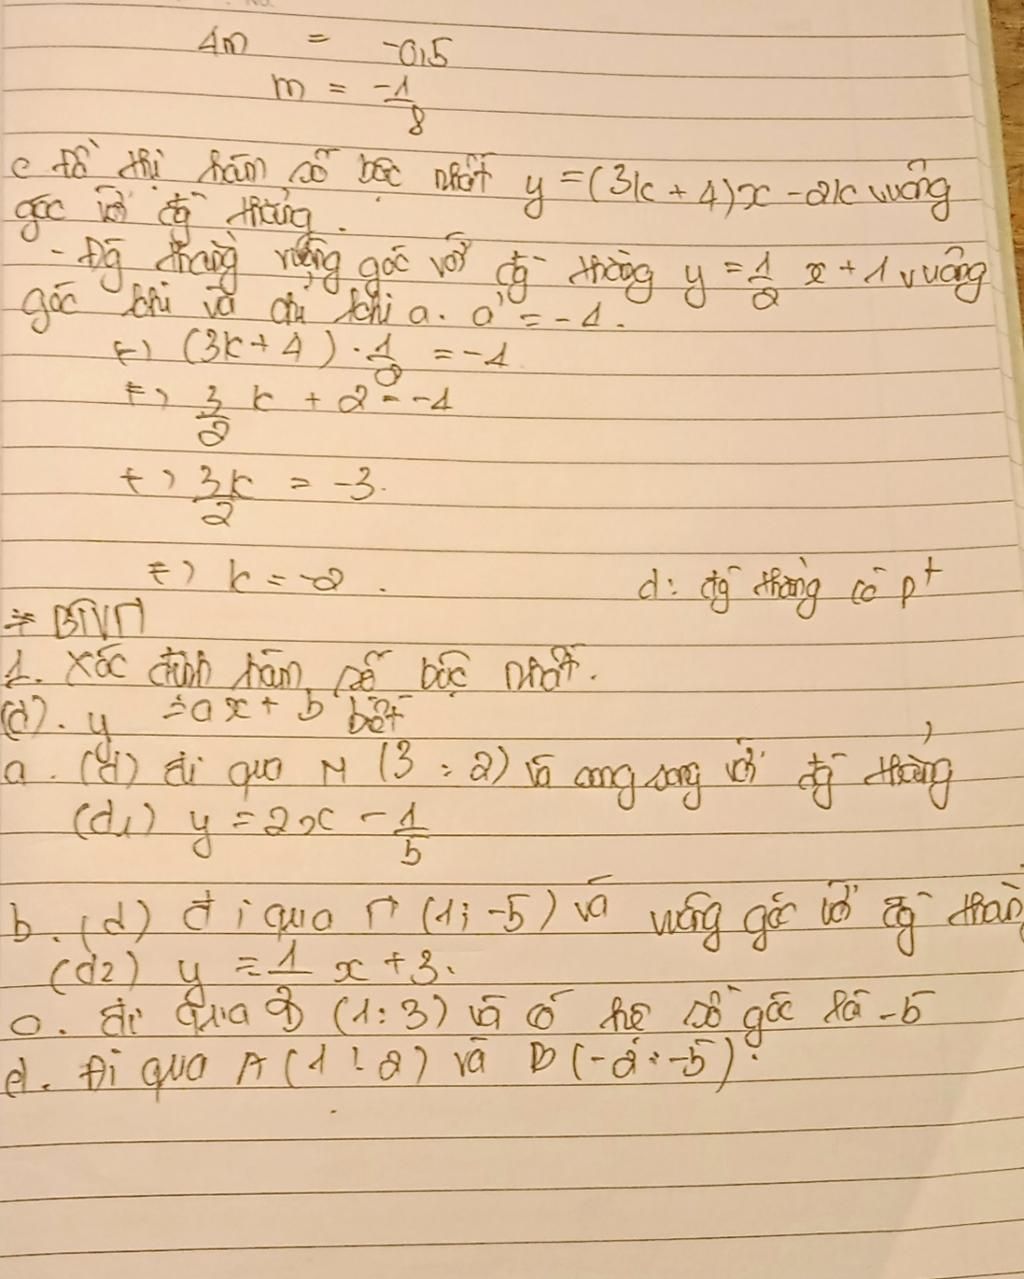 4m = -0,5
m = -1/8
c Đồ thị hàm số bậc nhất y = (3k + 4)x - 2k vuông
góc với đg̃ thẳng.
- Đg̃ thẳng vuông góc với đg̃ thẳng y = 1/2 x + 1 vuông
góc khi và chỉ khi a. a' = -1.
<=> (3k + 4) . 1/2 = -1
<=> 3/2 k + 2 = -1
<=> 3k/2 = -3.
<=> k = -2. d: đg̃ thẳng có pt
* BTVN
1. Xác định hàm số bậc nhất.
(d). y = ax + b biết
a. (d) đi qua M (3 ; 2) và song song với đg̃ thẳng
(d1) y = 2x - 1/5
b. (d) đi qua (1; -5) và vuông góc với đg̃ thẳn
(d2) y = 1 x + 3.
c. đi qua (1; 3) và có hệ số góc là -5
d. Đi qua A (1 ; 2) và B (-2 ; -5).